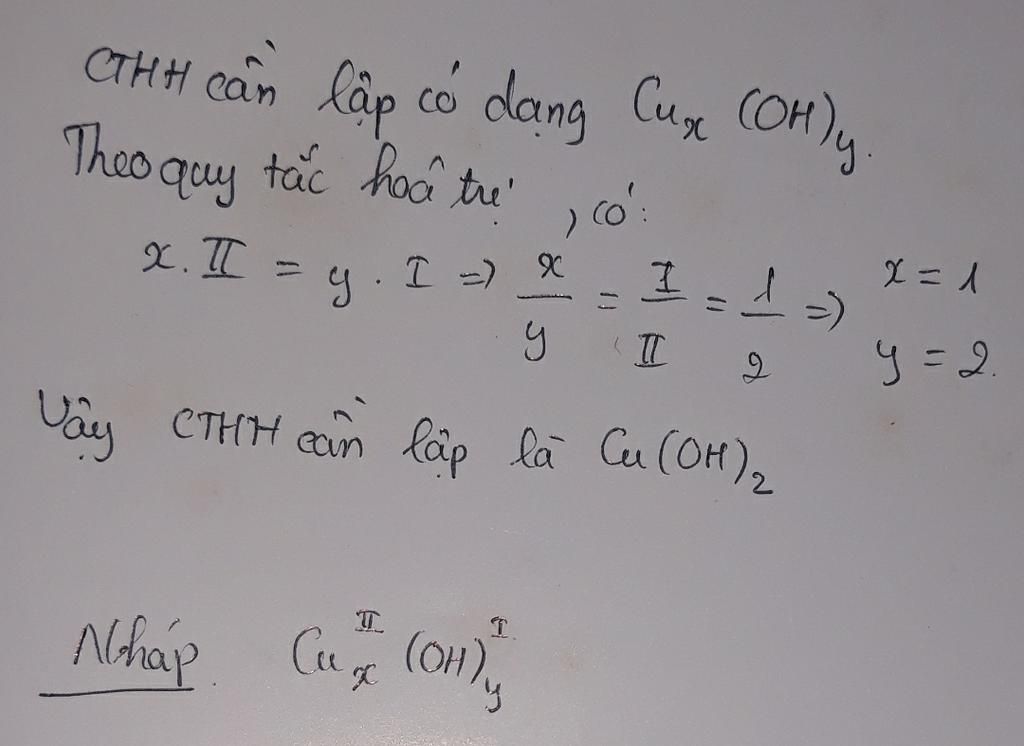 CTHH cần lập có dạng Cuₓ (OH)y.
Theo quy tắc hoá trị, có:
x. II = y. I => x/y = I/II = 1/2 => x = 1 y = 2.
Vậy CTHH cần lập là Cu(OH)₂
Nháp. Cuₓ^II (OH)y^I